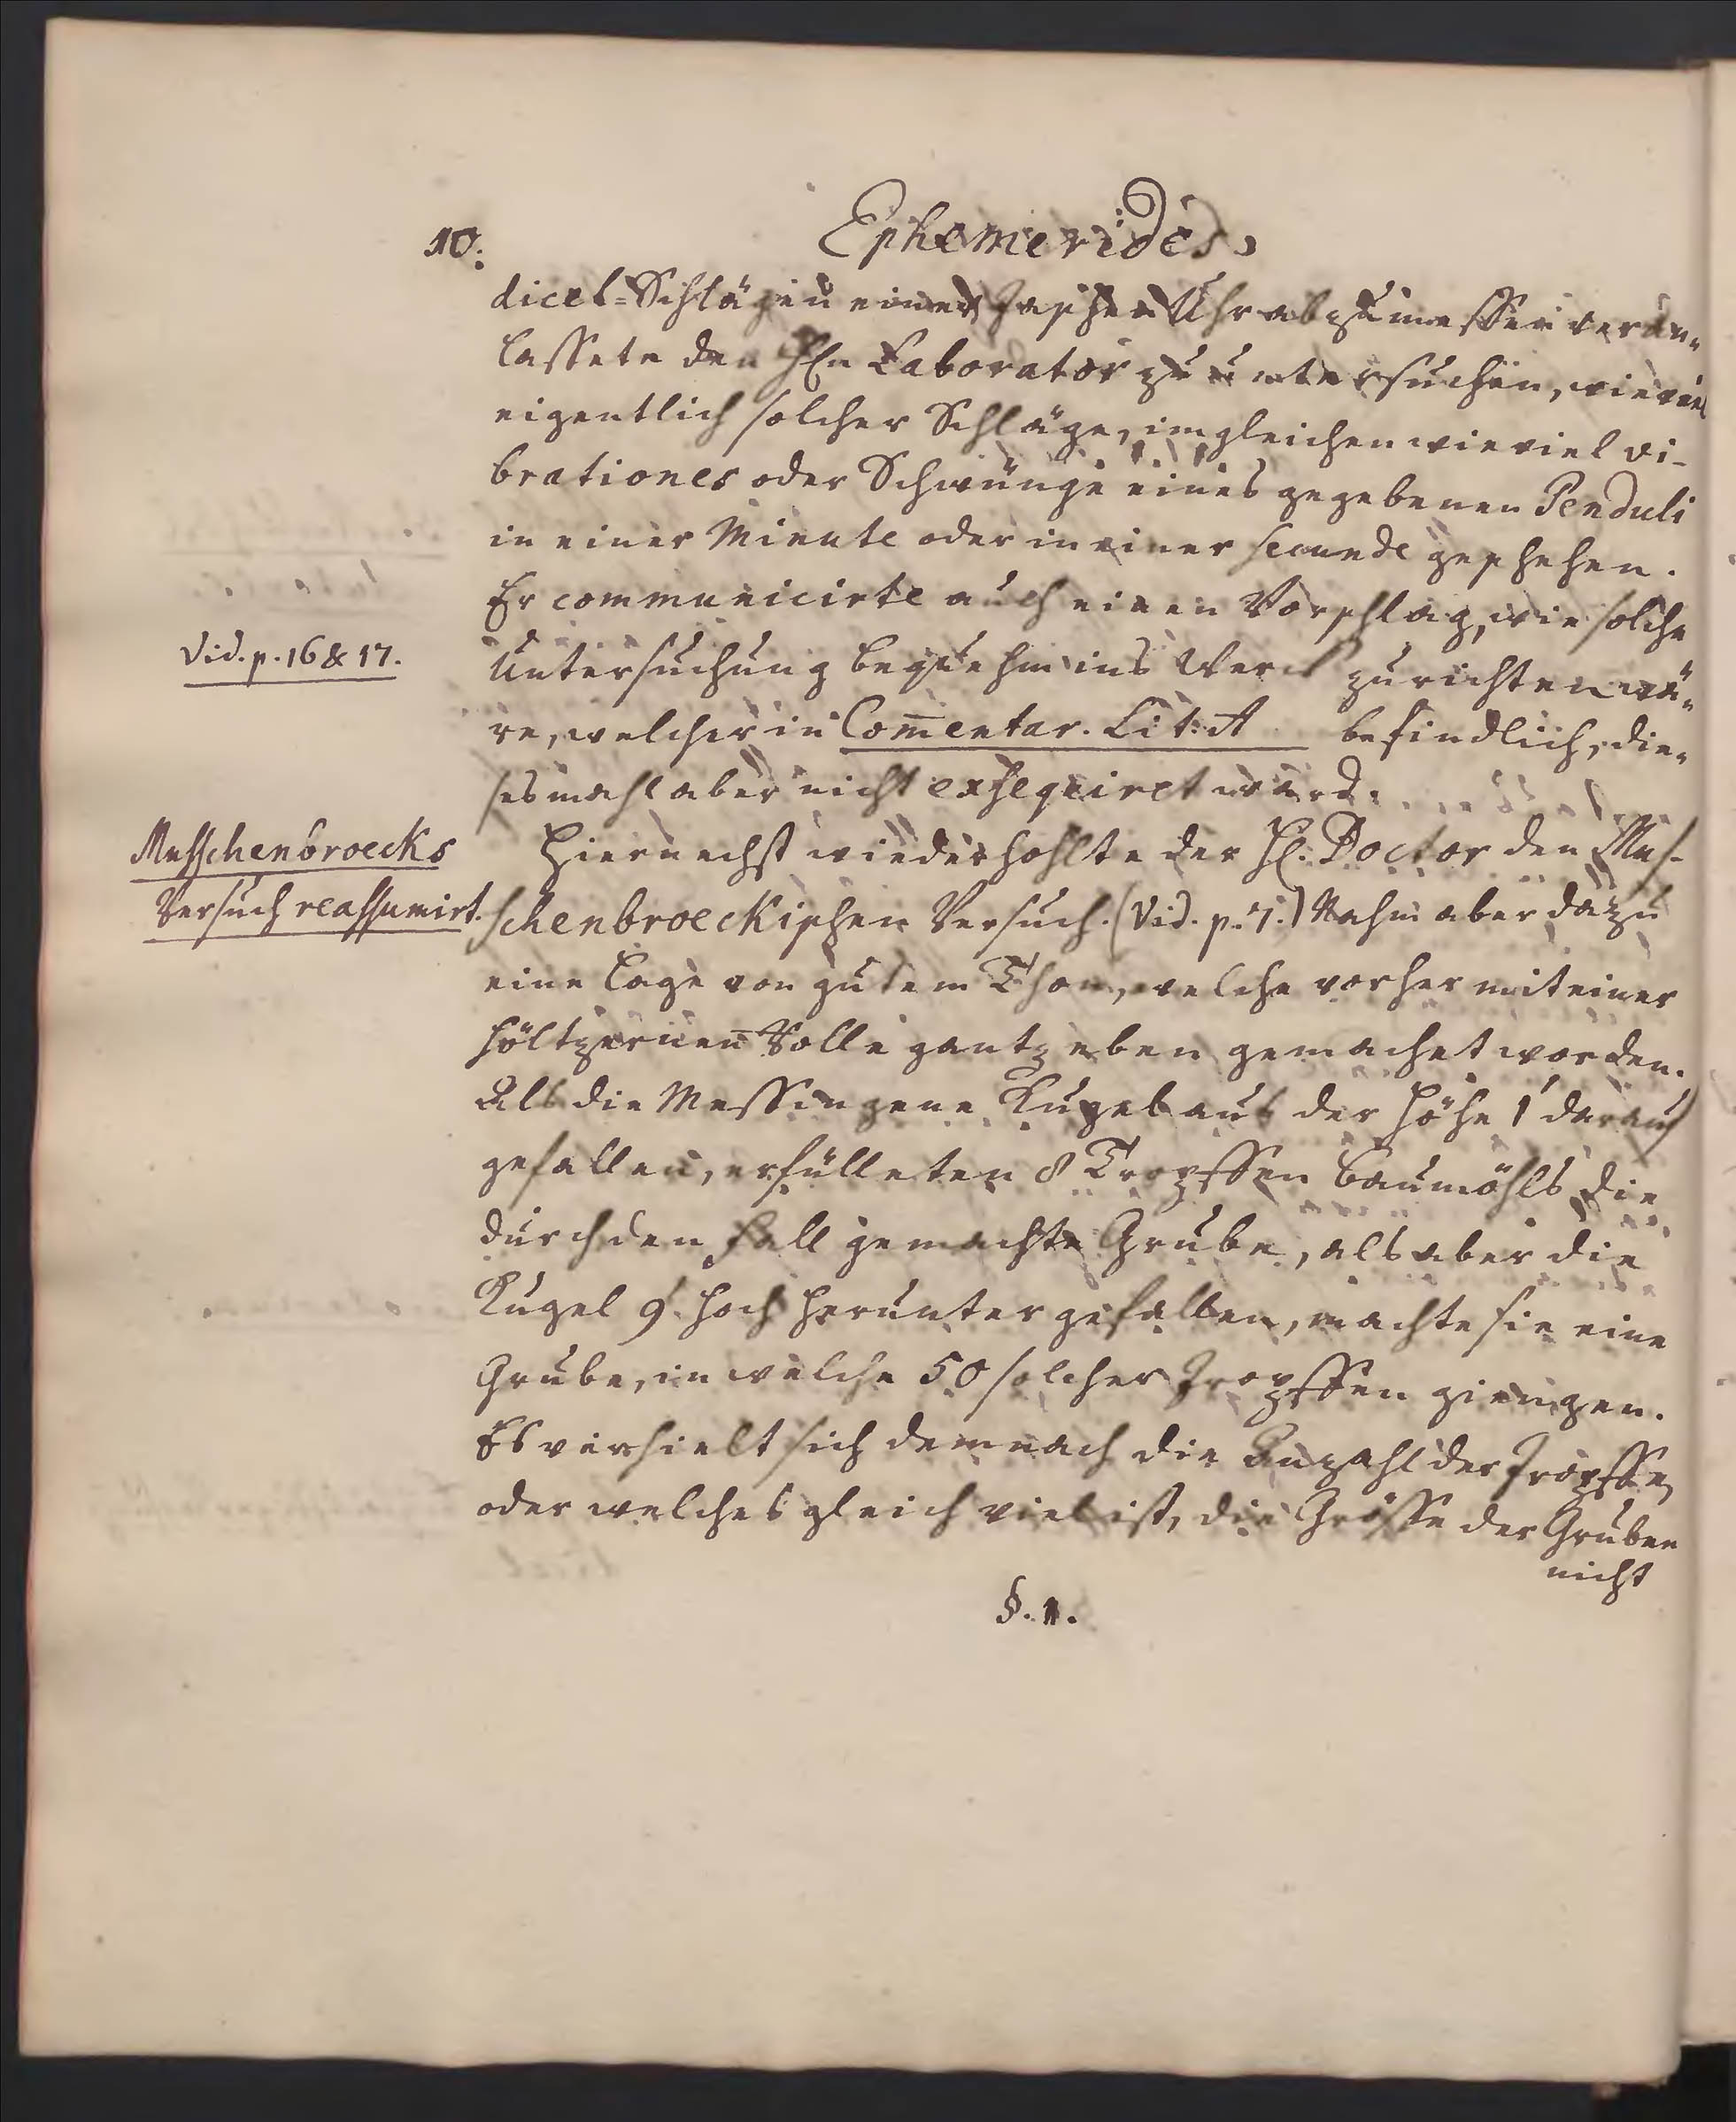 10.
Ephemerides
dicel-Schlägen einer Taschen Uhr abzumessen veran-
lassete den HEn Laborator zu untersuchen, wie viel
eigentlich solcher Schläge, imgleichen wie viel vi-
brationes oder Schwünge eines gegebenen Penduli
in einer Minute oder in einer secunde geschehen.
Er communicirte auch einen Vorschlag, wie solche
Vid. p. 16 & 17.
Untersuchung bequehm ins Werck zu richten wä-
re, welcher in Com̅entar. Lit: A befindlich, die-
sesmahl aber nicht exsequiret ward.
Musschenbroecks
Versuch reassumirt.
Hiernechst wiederhohlte der H. Doctor den Mus-
schenbroeckischen Versuch. (Vid. p. 7.) Nahm aber dazu
eine Lage von gutem Thon, welche vorher mit einer
höltzernen̅ Rolle gantz eben gemachet worden.
Als die Messingene Kugel aus der Höhe 1' darauf
gefallen, erfülleten 8 Tropffen Baumöhls die
durch den Fall gemachte Grube, als aber die
Kugel 9' hoch herunter gefallen, machte sie eine
Grube, in welche 50 solcher Tropffen giengen.
Es verhielt sich demnach die Anzahl der Tropffen
oder welches gleich viel ist, die Grösse der Gruben
nicht
§. 1.